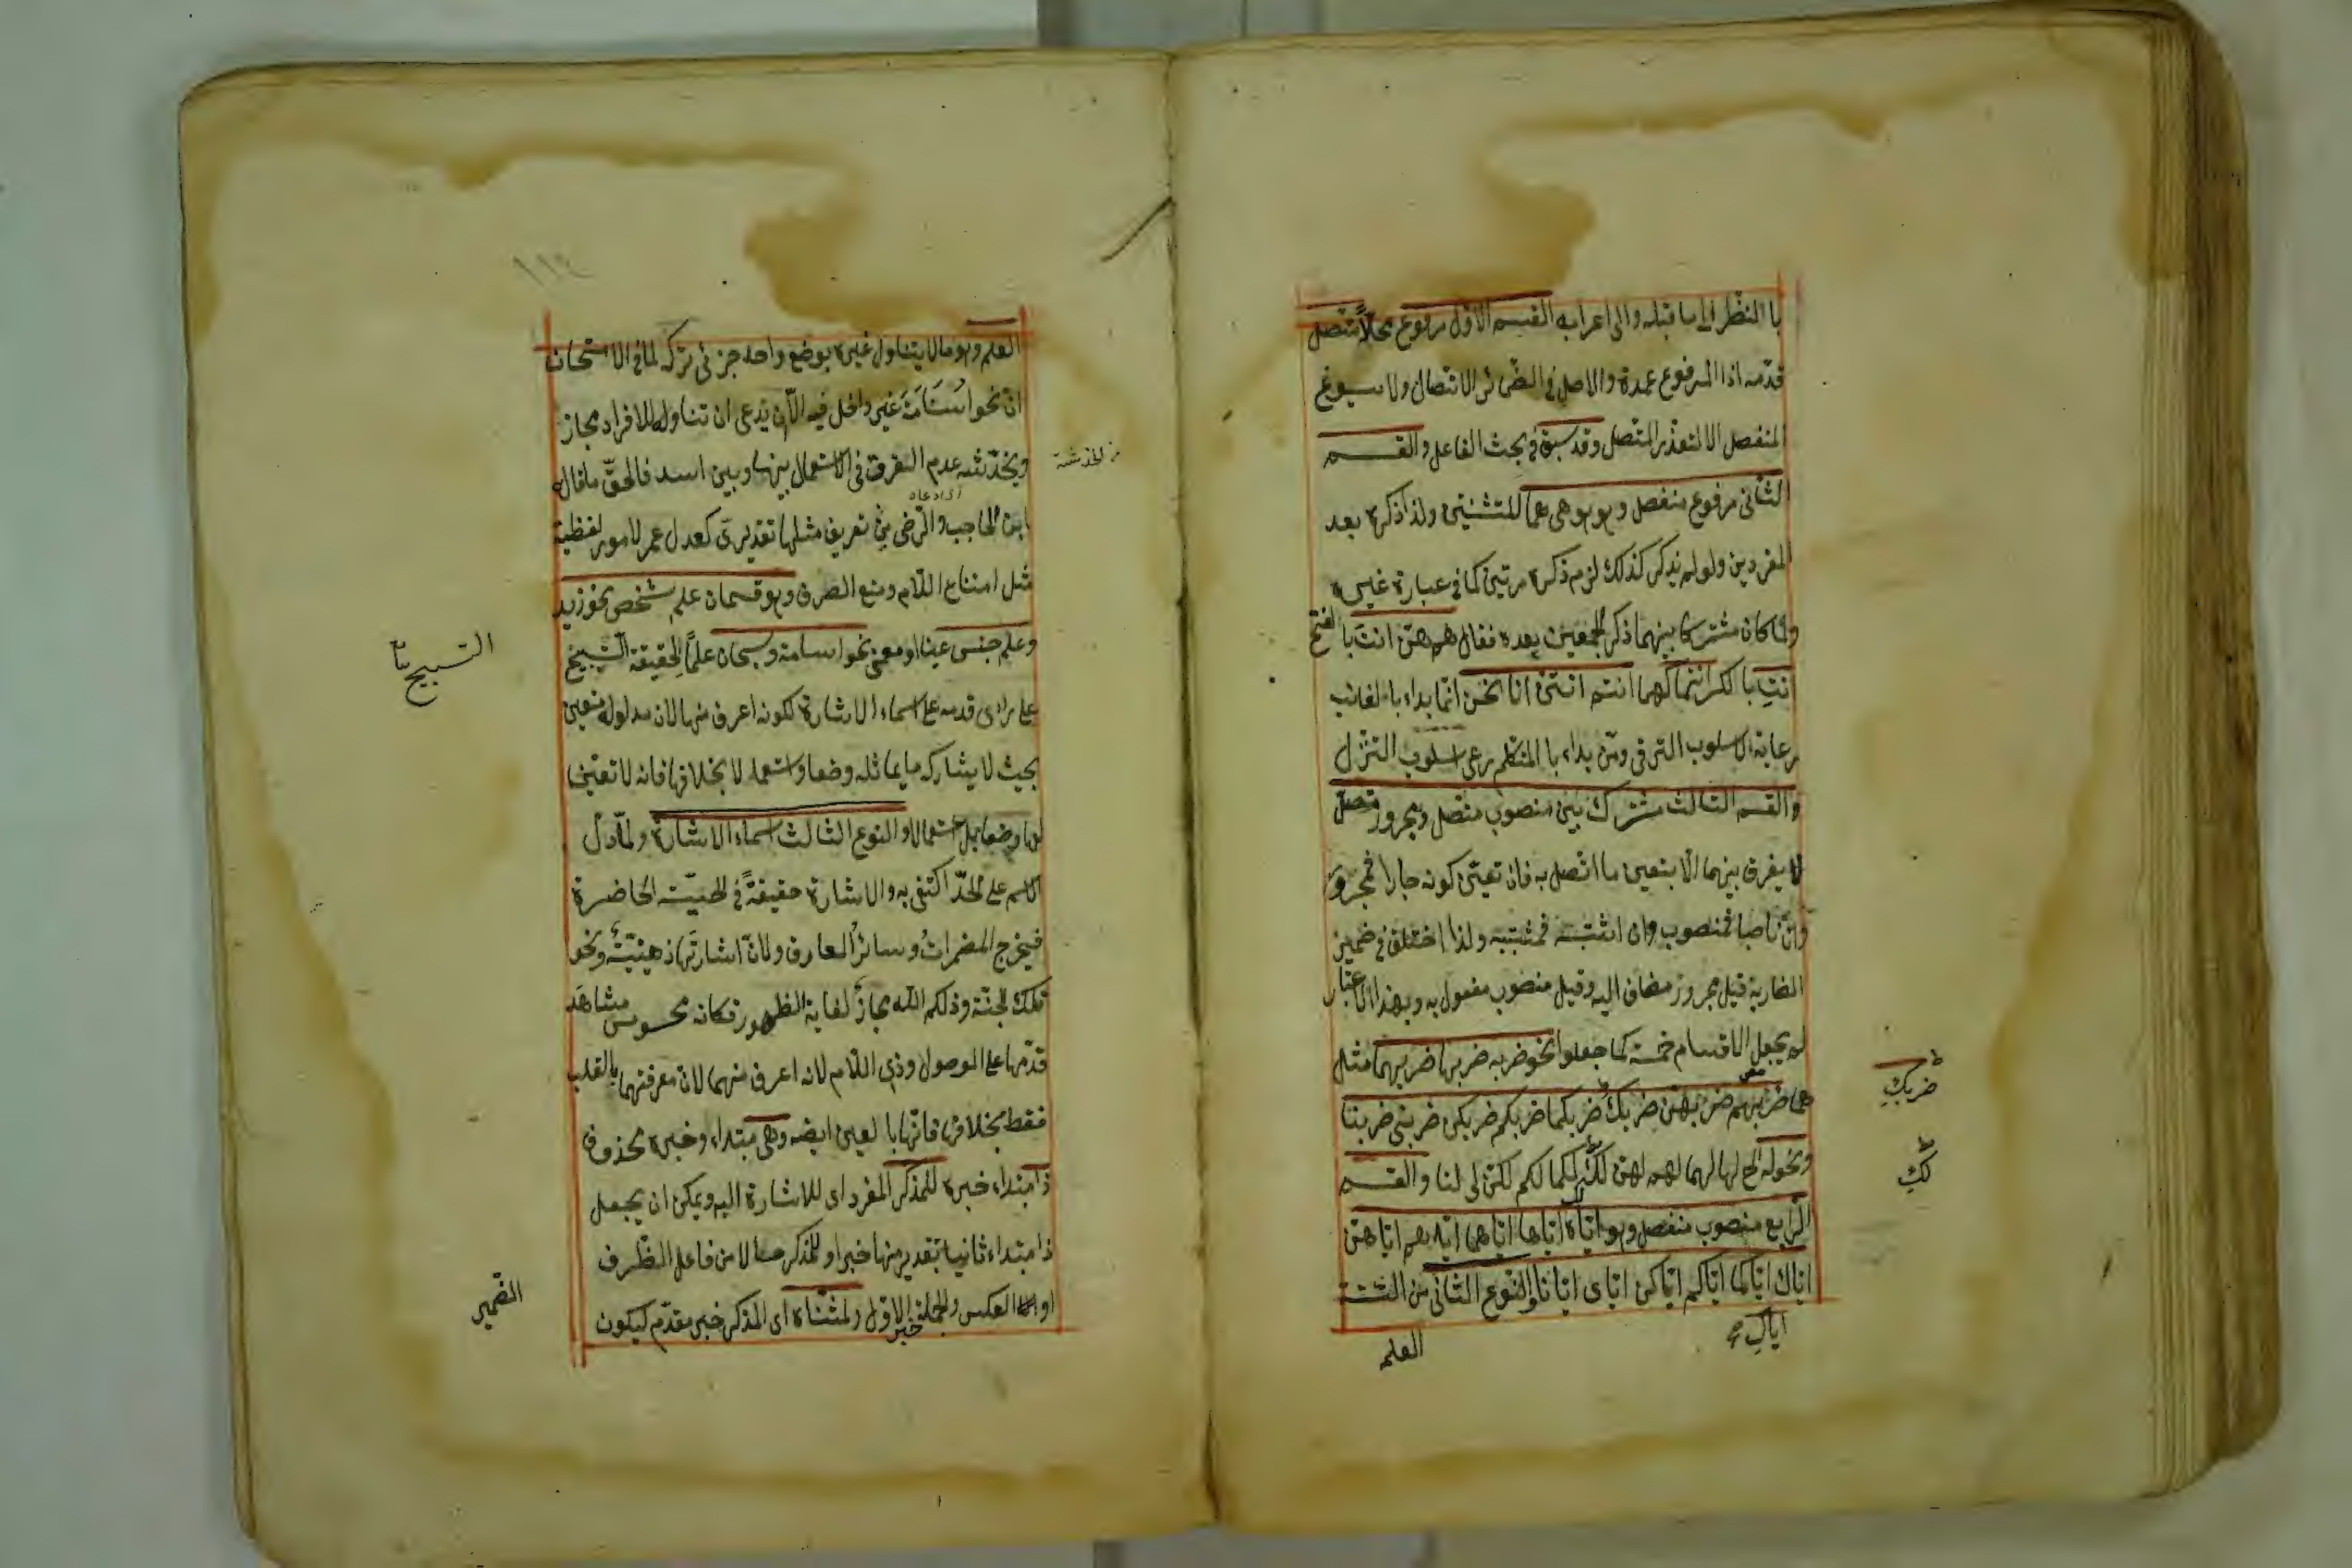 با النظر الى ما قبله والى اعرابه القسم الاول مرفوع محلاً متصل
قدّمه اذا المرفوع عمدة والاصل في الضمائر الاتصال ولا يسوغ
المنفصل الا لتعذر المتصل وقد سبق في بحث الفاعل والقسم
الثانى مرفوع منفصل وهو هو هى هما للمتثنيتين ولذا ذكره بعد
المفردين ولو لم يذكر كذلك لزم ذكره مرتين كما في عبارة غيره
ولما كان مشتركا بينهما ذكر الجمعين بعده فقال هم هنّ انتَ با الفتح
انتِ با الكسر انتما كهما انتم انتنّ انا نحن انما بداء با الغائب
رعاية لاسلوب الترقى ومن بداء با المتكلم رعى اسلوب التنزل
والقسم الثالث مشترك بين منصوب متصل ومجرور متصل
لا يفرق بينهما الا بتعين ما اتصل به فان تعيّن كونه جارا فمجرور
وان ناصبا فمنصوب وان اشتبه فمشتبه ولذا اختلف في ضمير
الضاربه قيل مجرور مضاف اليه وقيل منصوب مفعول به وبهذا الاعتبار
لم يجعل الاقسام خمسة كما جعلوا نحو ضربه ضربها ضربهما مثل
هما ضربهم ضربهنّ ضربك ضربكما ضربكم ضربكن ضربنى ضربنا
ضربكِ
ونحو له الخ لها لهما لهم لهن لك لكما لكم لكنّ لى لنا والقسم
لكِ
الرابع منصوب منفصل وهو ايّاه ايّاها ايّاهما ايّاهم ايّاهنّ
اياك ايّاكما ايّاكم ايّاكنّ ايّاى ايّانا والنوع الثانى من الستة
اياكِ
العلم
العلم وهو ما لا يتناول غيره بوضع واحد جزئى تركه لما في الامتحان
ان نحو اسَامَة غير داخل فيه الا ان يدعى ان تناوله للافراد مجاز
ويخدشه عدم التفرقة في الاستعمال بينها وبين اسد فالحقّ ما قاله
ابن الحاجب والرّضى من تعريف مثلها تقديرى كعدل عمر لامور لفظية
مثل امتناع اللام ومنع الصرف وهو قسمان علم شخص نحو زيد
وعلم جنس عينا او معنى نحو اسامة وسبحان علماً لحقيقة التسبيح
التسبيح
على رأى قدمه على اسماء الاشارة لكونه اعرف منها لان مدلوله متعين
بحيث لا يشاركه ما يماثله وضعا واستعمالا بخلافها فانه لا تعيّن
لها وضعا بل استعمالا والنوع الثالث اسماء الاشارة ولما دلّ
الاسم على الحدّ اكتفى به والاشارة حقيقةً في الحسيّة الحاضرة
فيخرج المضمرات وسائر المعارف ولان اشارتها ذهنيّة ونحو
تلك الجنّة وذلكم الله مجاز لغاية الظهور فكانه محسوس مشاهَد
قدّمها على الموصول وذى اللام لانه اعرف منهما لان معرفتهما بالقلب
فقط بخلافها فانها با لعين ايضه وهى مبتداء وخبره محذوف
ذا مبتداء خبره للمذكر المفرد اى للاشارة اليه ويمكن ان يجعل
ذا مبتداء ثانيا بتقدير منها خبرا وللمذكر حالا من فاعل الظرف
او العكس والجملة خبر الاول ولمثنّاه اى المذكر خبر مقدّم ليكون
الضمير